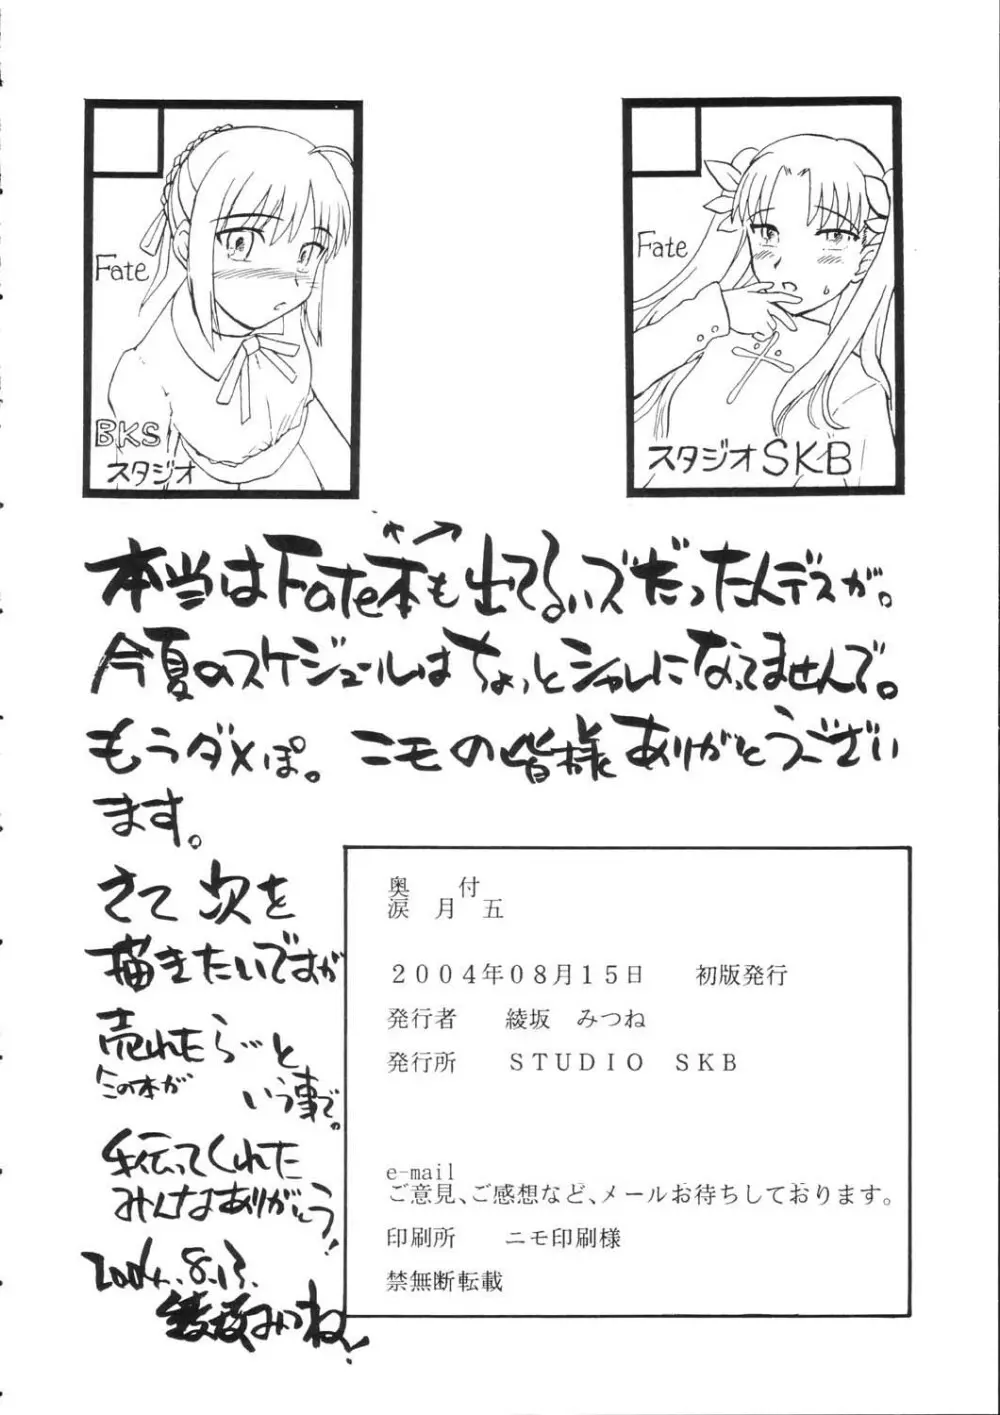 Fate
BKS
スタジオ
Fate
スタジオSKB
本当はFate本も出てるハズだったんデスが。
今夏のスケジュールはちょっとシャレになってませんで。
もうダメぽ。ニモの皆様ありがとうござい
ます。
さて次を
描きたいですが
売れたら…と
この本が
いう事で。
手伝ってくれた
みんなありがとう!
2004.8.13.
綾坂みつね!
奥　付
涙　月　五
2004年08月15日　初版発行
発行者　綾坂　みつね
発行所　STUDIO　SKB
e-mail
ご意見、ご感想など、メールお待ちしております。
印刷所　ニモ印刷様
禁無断転載